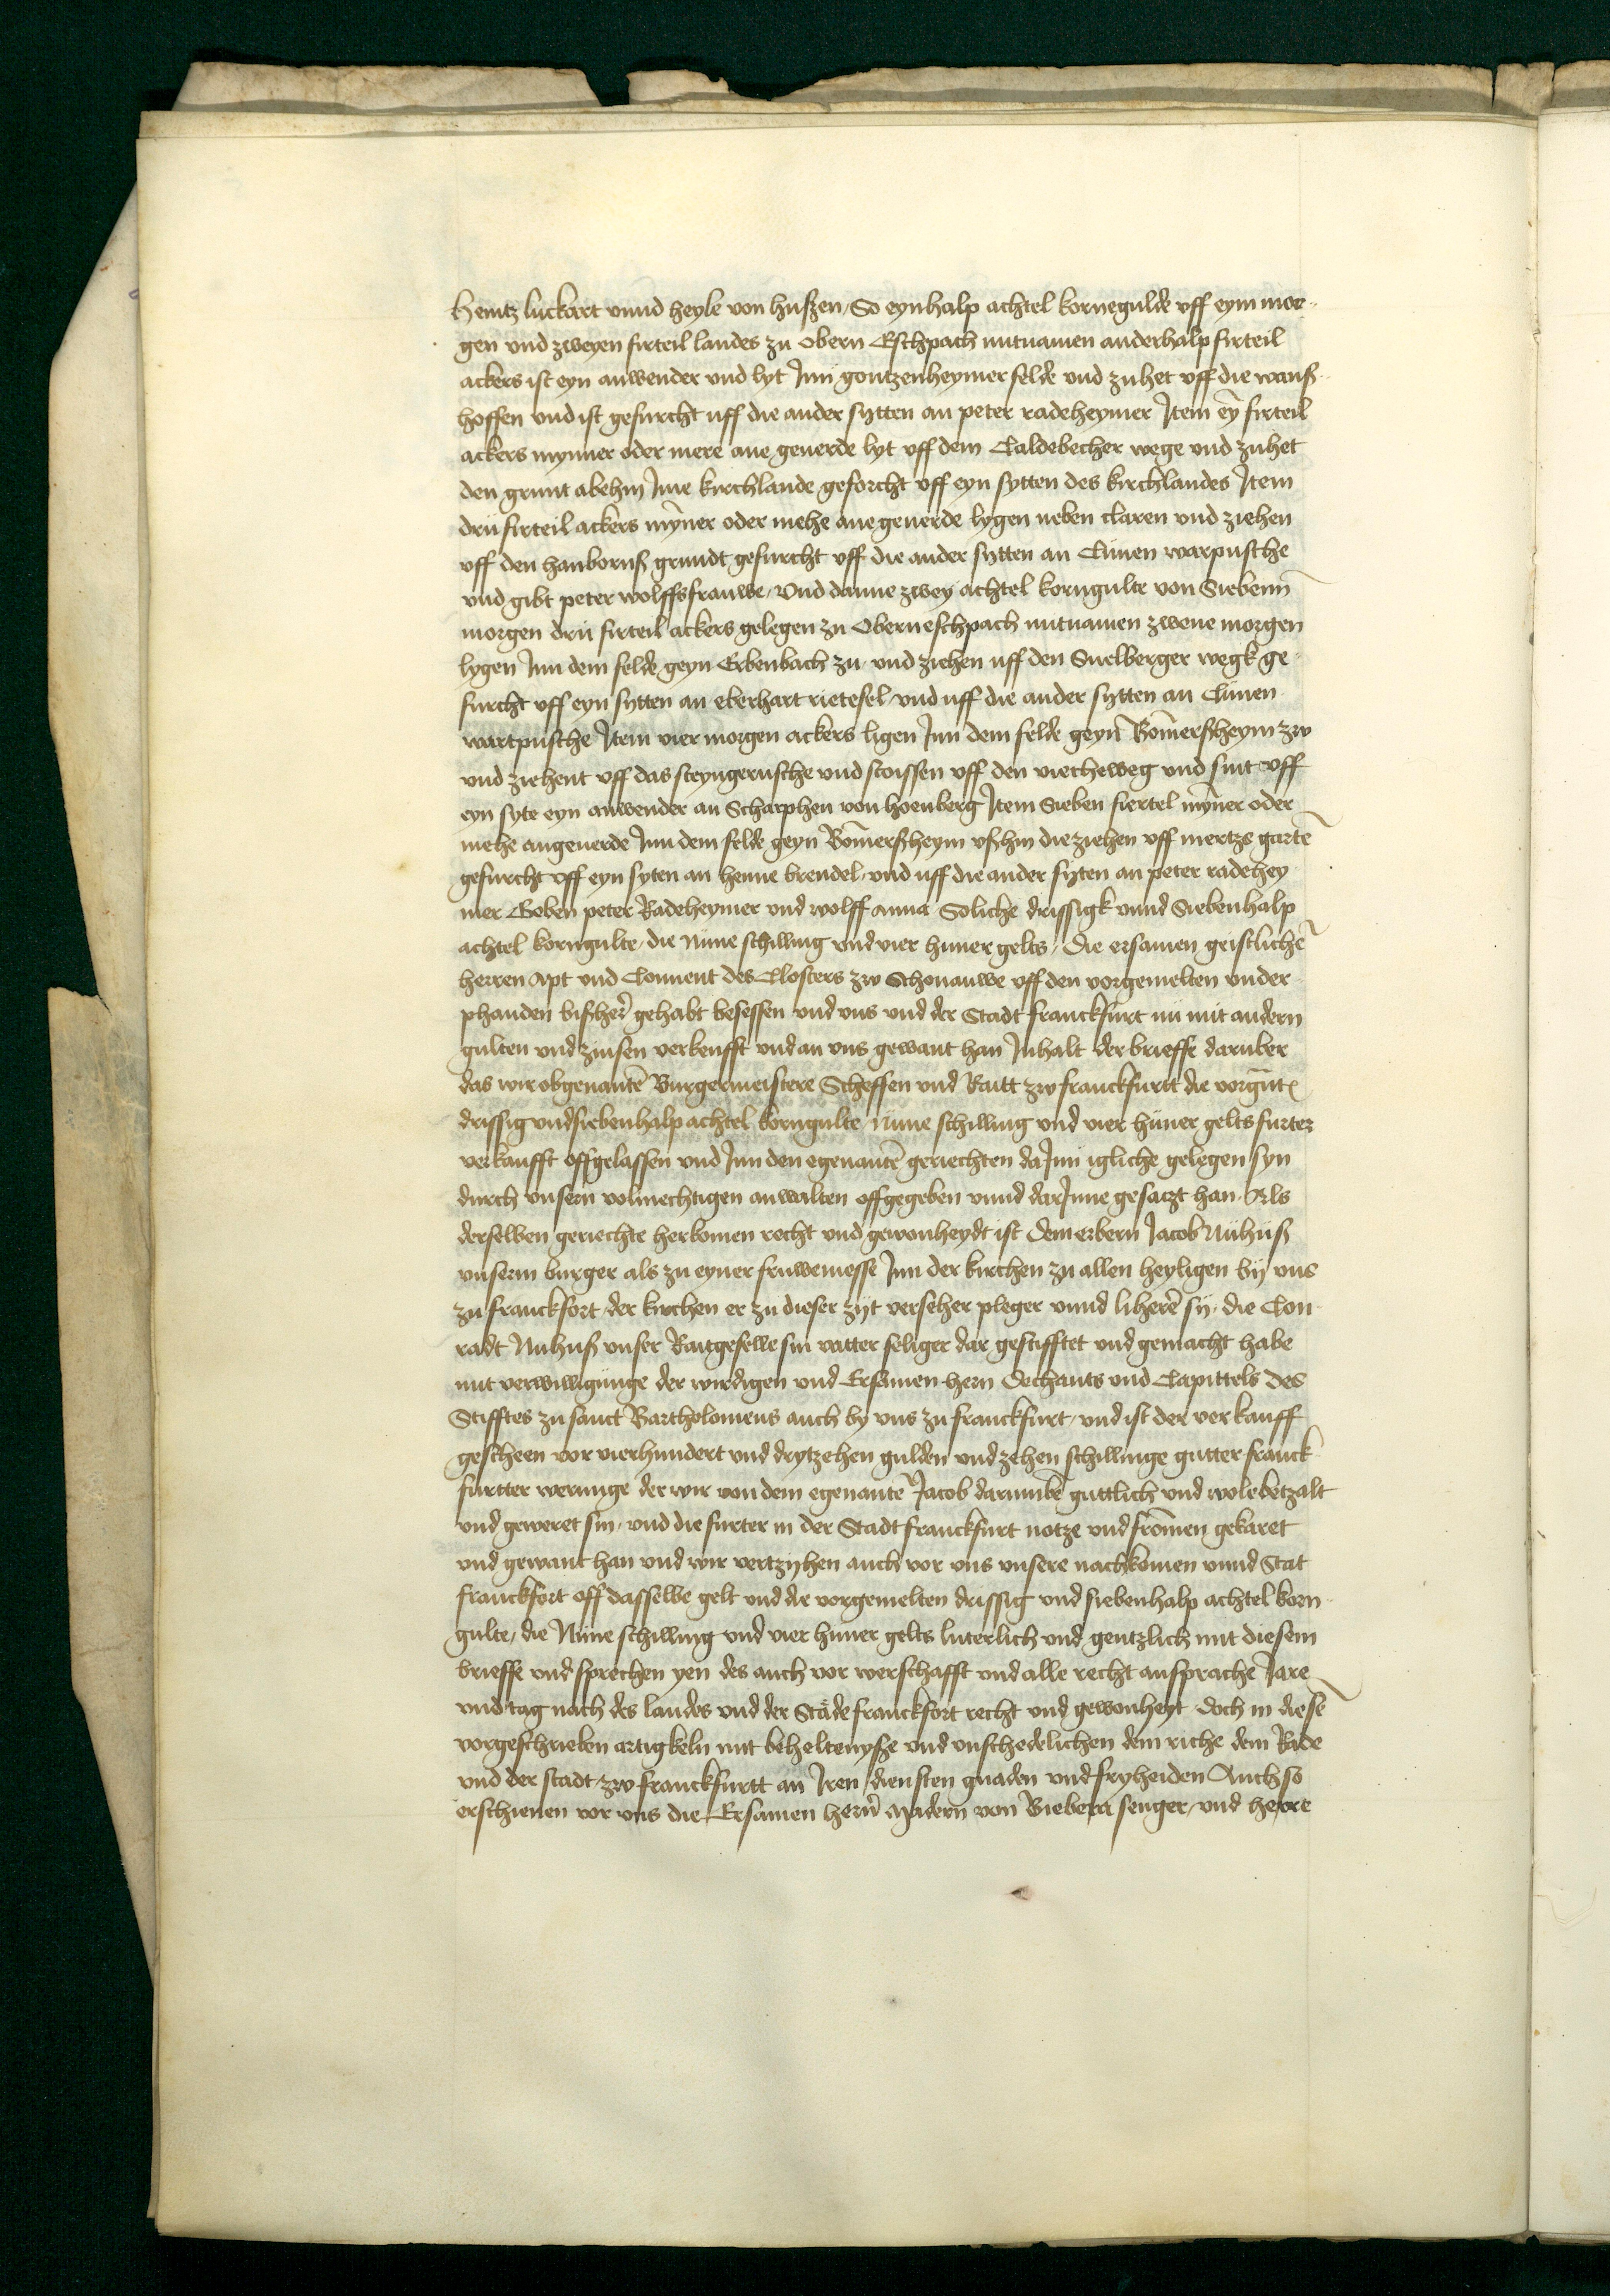 Hentz luckart vnnd heyle von hußen / So eynhalp achtel kornegulde vff eym mor-
gen vnd zweyen firteil landes zu Obern Eschpach mitnamen anderhalp firteil
ackers ist eyn anwender vnd lyt Jnn gontzenheymer felde vnd zuhet vff die wanß-
hoffen vnd ist gefurcht uff die ander sytten an peter radeheymer Jtem ey̅ firteil
ackers mynner oder mere ane geuerde lyt vff dem Caldebecher wege vnd zuhet
den grunt abehin Jnne kirchlande geforcht vff eyn sytten des kirchlandes Jtem
dru firteil ackers my̅ner oder mehe ane geuerde lygen neben claren vnd ziehen
vff den hanbornß grundt gefurcht vff die ander sytten an Clauen warpusche
vnd gibt peter wolffs frauwe / Vnd danne zwey achtel korngulte von Siebenn
morgen dru firteil ackers gelegen zu Oberneschpach mitnamen zwene morgen
lygen Jnn dem felde geyn Erbenbach zu / vnd ziehen uff den Suelberger wegk ge-
furcht vff eyn sytten an eberhart rietesel / vnd uff die ander sytten an Clauen
wartpusche Jtem vier morgen ackers ligen Jnn dem felde geyn Bo̅merßheym zw
vnd ziehent vff das steyngerusche vnd stoissen vff den viecheweg vnd sint vff
eyn syte eyn anwender an Scharphen von hoenberg Jtem Sieben fiertel my̅ner oder
mehe angeuerde Jnn dem felde geyn Bo̅merßheym vßhin die ziehen vff mertzs garte̅
gefurcht vff eyn syten an henne brendel / vnd uff die ander syten an peter radehey
mer Geben peter Radeheymer vnd wolff anna Soliche drissigk vnnd Siebenhalp
achtel korngulte / die nüne schilling vnd vier huner gelts / Die ersamen geistliche̅
herren Apt vnd Conuent des Closters zw Schonauwe vff den vorgemelten vnder-
phanden bißher gehabt besessen vnd vns vnd der Stadt franckfurt nu mit andern
gulten vnd zinsen verkeufft vnd an vns gewant han Jnhalt der brieffe daruber
das wir obgenante̅ Burgermeistere Scheffen vnd Raitt zw franckfurtt die vorg̅nt̅
drissig vnd siebenhalp achtel korngulte / nüne schilling vnd vier hüner gelts furter
verkaufft offgelassen vnd Jnn den egenante̅ geriechten da Jnn igliche gelegen syn
durch vnsern volmechtigen anwalten offgegeben vnnd dar Jnne gesatzt han / Als
derselben geriechte herkomen recht vnd gewonheydt ist dem erbern Jacob Nühuß
vnserm burger als zu eyner fruwemesse Jnn der kirchen zu allen heyligen bij vns
zu franckfort / der kirchen er zu dieser zijt verseher pleger vnnd lihere̅ sij / die Con-
radt Nuhuß vnser Raitgeselle sin vatter seliger dar gestifftet vnd gemacht habe
mit verwilligunge der wirdigen vnd Ersamen hern Dechants vnd Capittels des
Stifftes zu sanct Bartholomeus auch by vns zu franckfurt / vnd ist der verkauff
gescheen vor vierhundert vnd drytzehen gulden vnd zehen schillinge gutter franck-
furtter werunge der wir von dem egenante̅ Jacob darumbe guttlich vnd wole betzalt
vnd geweret sin / vnd die furter in der Stadt franckfurt notze vnd fro̅men gekaret
vnd gewant han vnd wir vertzijhen auch vor vns vnsere nachkomen vnnd Stat
franckfort off dasselbe gelt vnd die vorgemelten drissig vnd siebenhalp achtel korn-
gulte / die Nüne schilling vnd vier huner gelts luterlich vnd gentzlich mit diesem
brieffe vnd sprechen yen des auch vor werschafft vnd alle recht ansprache Jare
vnd tag nach des landes vnd der Stade franckfort recht vnd gewonheyt Doch in diese̅
vorgeschrieben artigkeln mit beheltenyße vnd vnschedelichen dem riche dem Rade
vnd der stadt zw franckfurtt an Jren diensten gnaden vnd fryheiden Auch so
erschienen vor vns die Ersamen hern Madern von Biebera senger / vnd herre